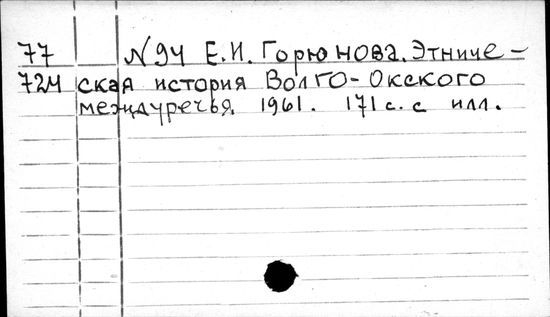 77 N 94 Е.И. Горюнова. Этниче-
724 ская история Волго-Окского
междуречья. 1961. 171 с. с илл.